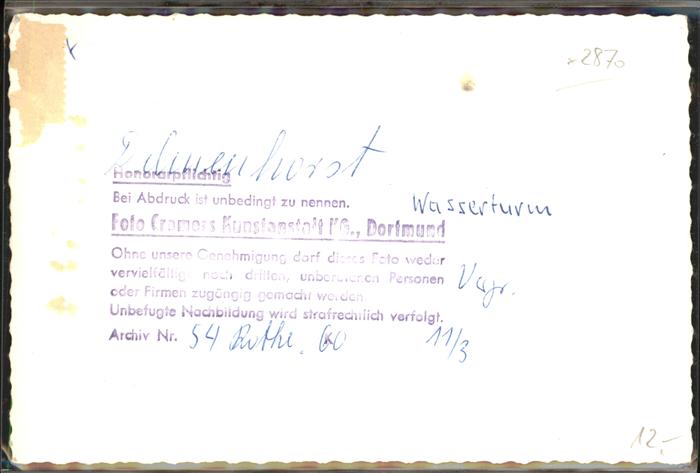 *2870
Delmenhorst
Honorarpflichtig
Bei Abdruck ist unbedingt zu nennen.
Wasserturm
Foto Cramers Kunstanstalt KG., Dortmund
Ohne unsere Genehmigung darf dieses Foto weder
vervielfältigt noch dritten, unberufenen Personen
oder Firmen zugängig gemacht werden.
Unbefugte Nachbildung wird strafrechtlich verfolgt.
Archiv Nr. 54 60 11/3
12.-